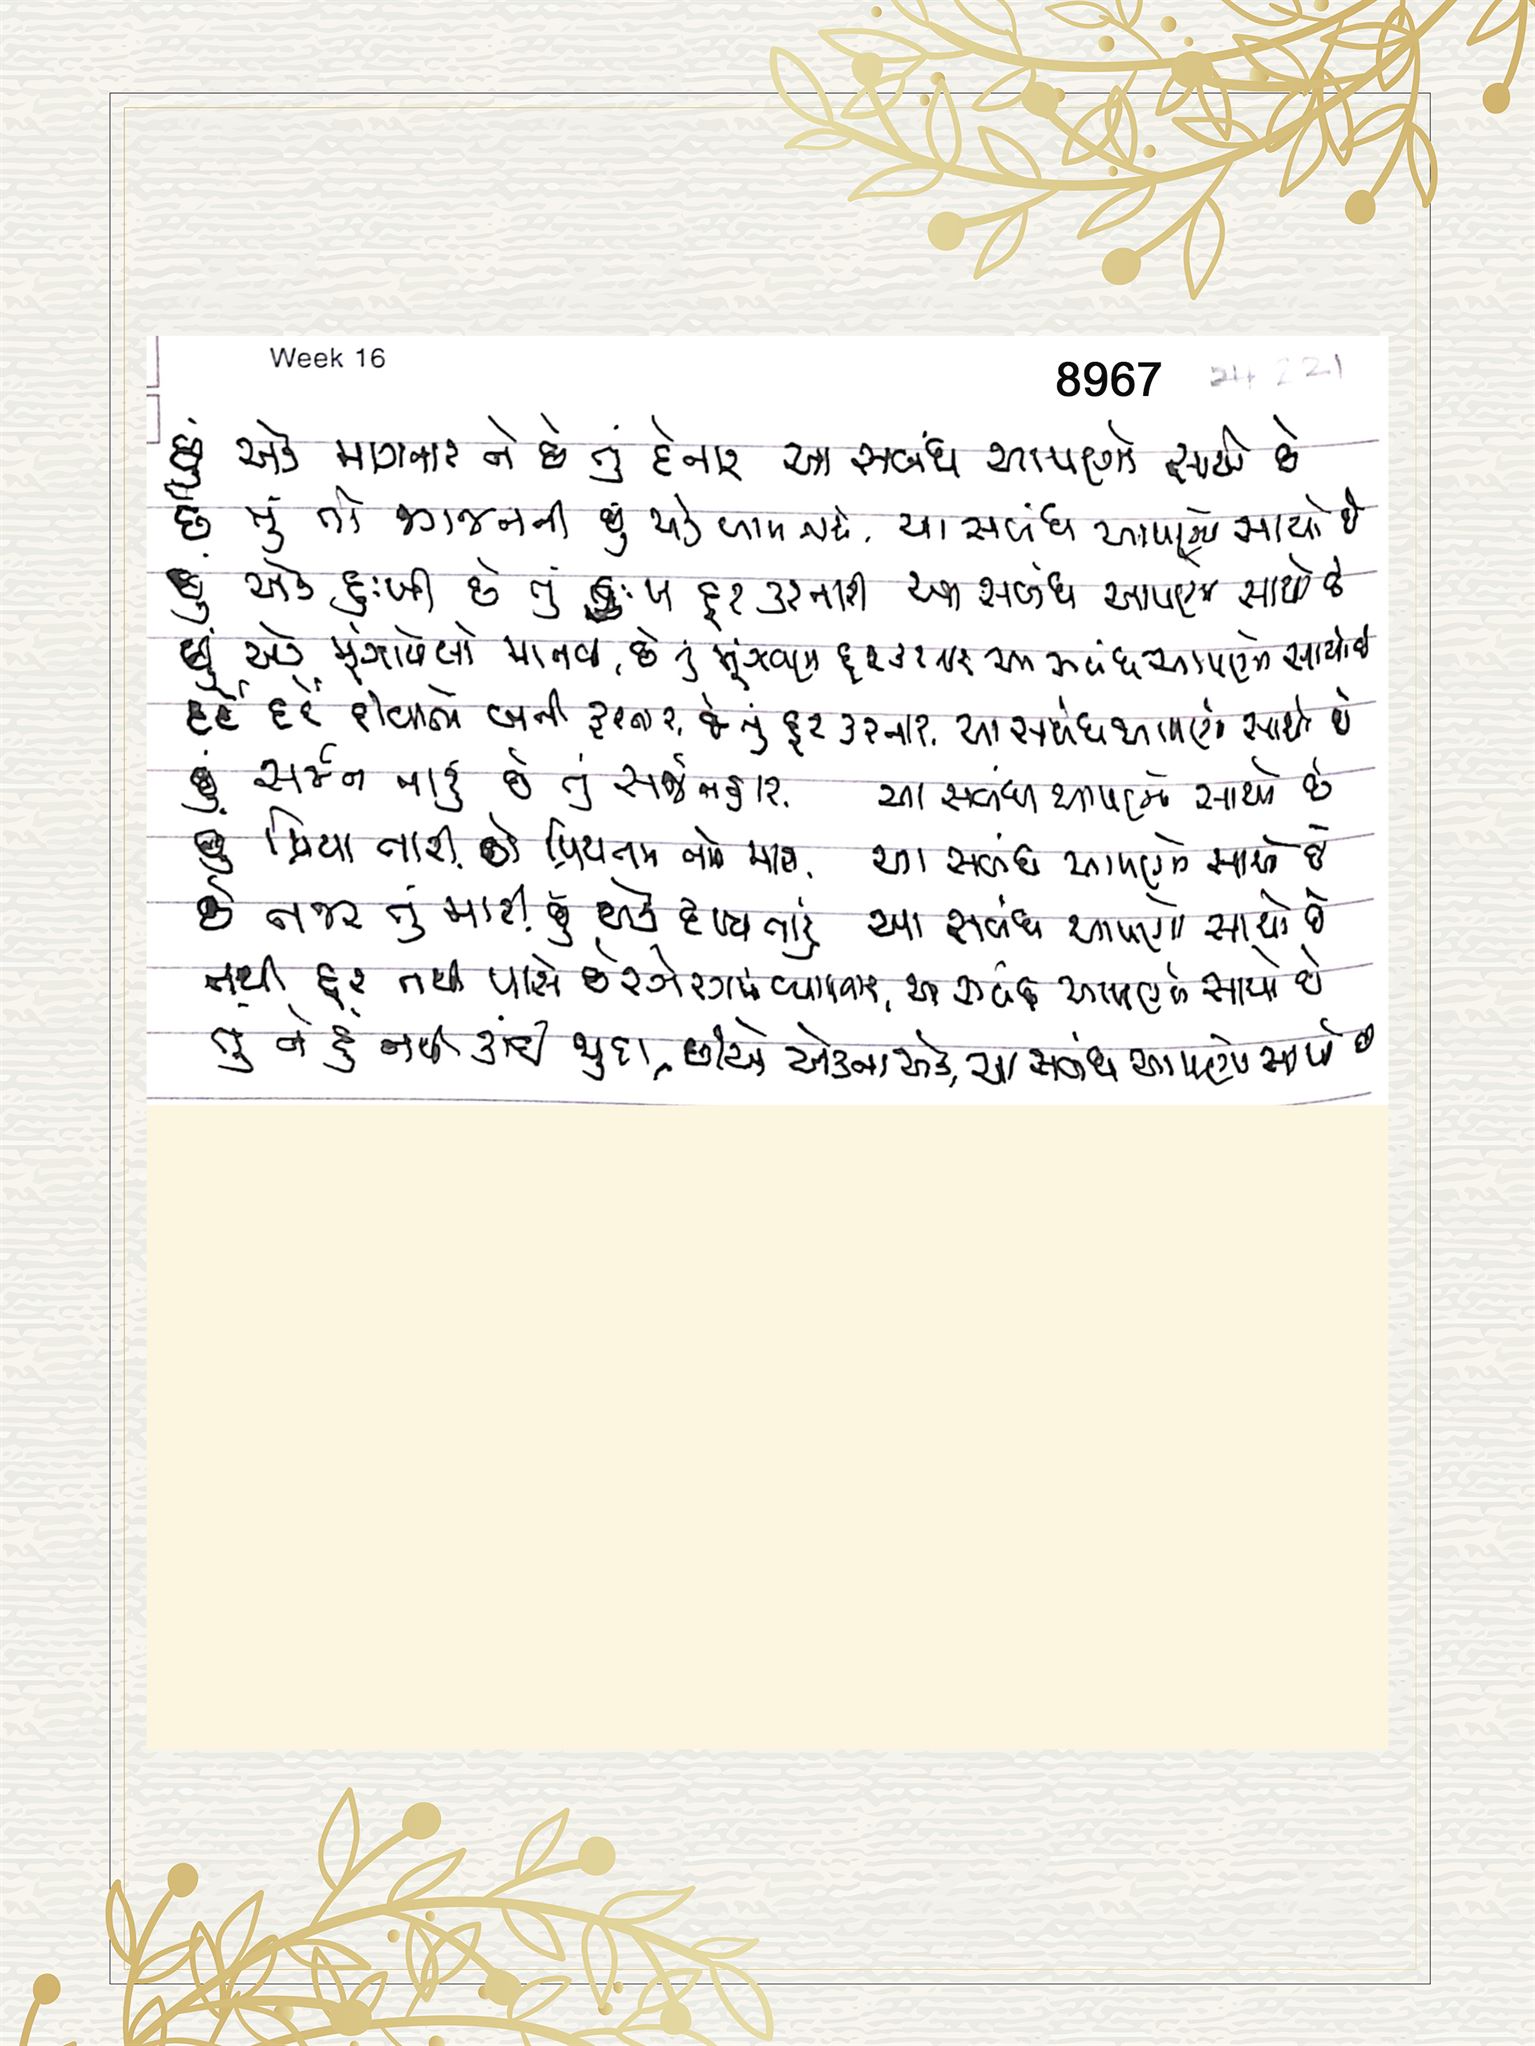 Week 16
8967
છું એક માગનાર ને છે તું દેનાર આ સબંધ આપણો સાચો છે
છે તું તો જગજનની છું એક બાળ આ સબંધ આપણો સાચો છે
છું એક દુઃખી છે તું દુઃખ દૂર કરનારી આ સબંધ આપણો સાચો છે
છું એક મૂંઝાયેલો માનવ, છે તું મૂંઝવણ દૂર કરનાર આ સબંધ આપણો સાચો છે
દર્દે દર્દે દીવાનો બની ફરનાર, છે તું દૂર કરનાર, આ સબંધ આપણો સાચો છે
છું સર્જન તારું છે તું સર્જનહાર. આ સબંધ આપણો સાચો છે
છું પ્રિયા તારી, છો પ્રિયતમ મારા. આ સબંધ આપણો સાચો છે
છે નજર તું મારી, છું એક દૃશ્ય તારું આ સબંધ આપણો સાચો છે
નથી દૂર નથી પાસે છે રગેરગમાં વ્યાપનાર, આ સબંધ આપણો સાચો છે
તું ને હું નથી કાંઈ જુદા, છીએ એકના એક, આ સબંધ આપણો સાચો છે